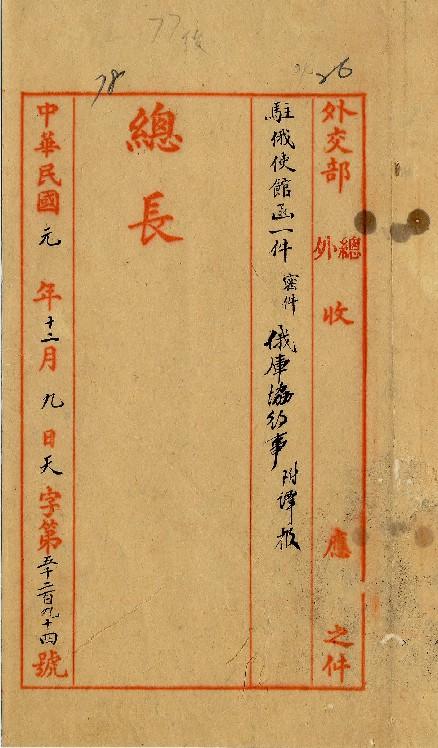 77 後
78
26
外交部 總外 收 應 之件
駐俄使館函一件 密件 俄庫協約事 附譯報
總長
中華民國元年十二月九日天字第五千二百九十四號